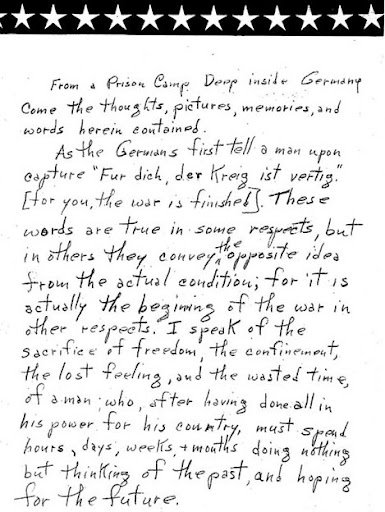 From a Prison Camp Deep inside Germany
Come the thoughts, pictures, memories, and
words herein contained.
As the Germans first tell a man upon
capture "Fur dich, der Kreig ist vertig."
[for you, the war is finished]. These
words are true in some respects, but
in others they convey the opposite idea
from the actual condition; for it is
actually the begining of the war in
other respects. I speak of the
sacrifice of freedom, the confinement,
the lost feeling, and the wasted time,
of a man; who, after having done all in
his power for his country, must spend
hours, days, weeks, + months doing nothing
but thinking of the past, and hoping
for the future.